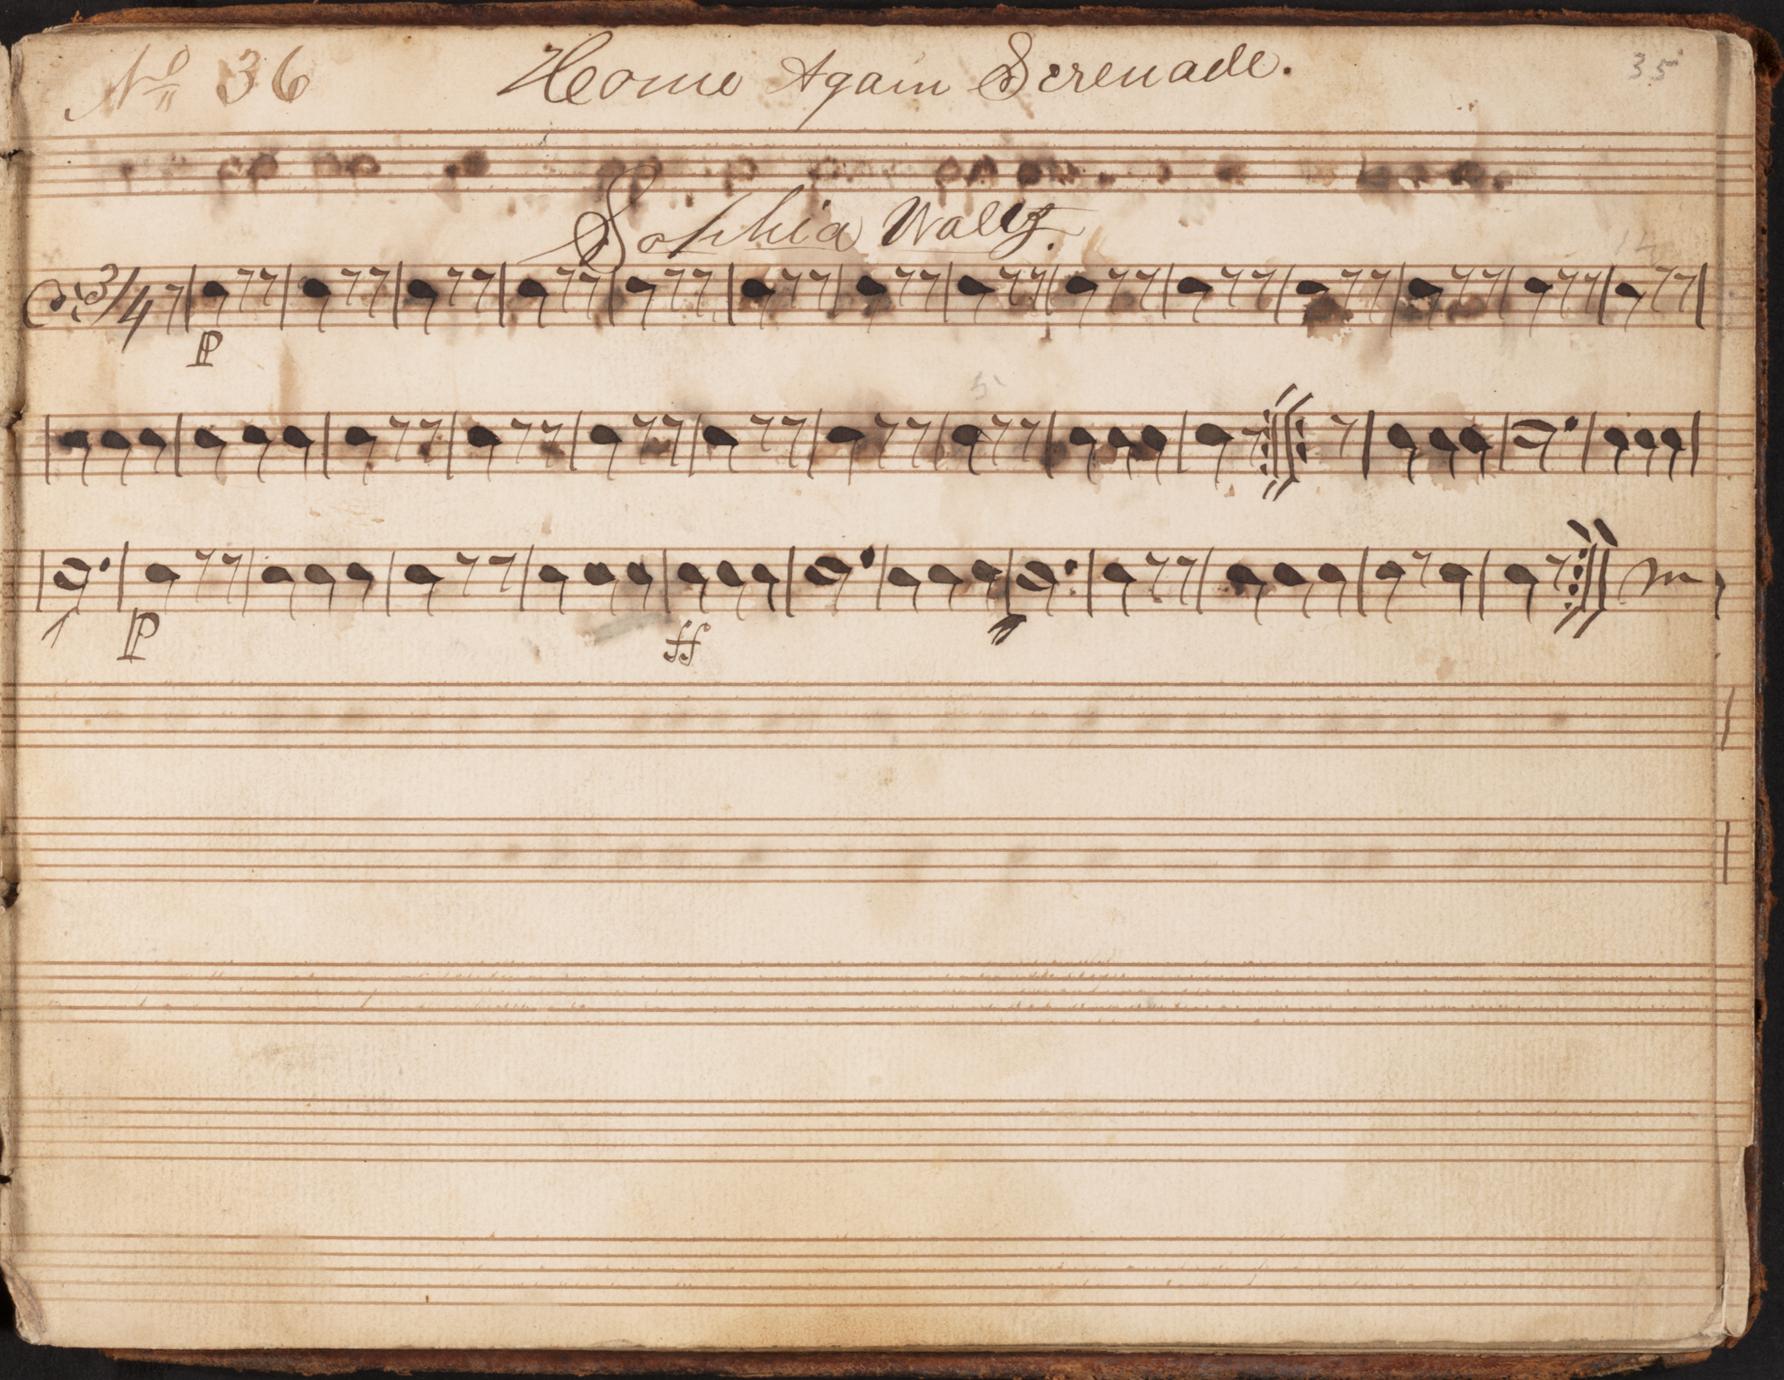 No 36 Home Again Serenade. 35
Sophia Waltz.
14
3/4
P
5
P ff